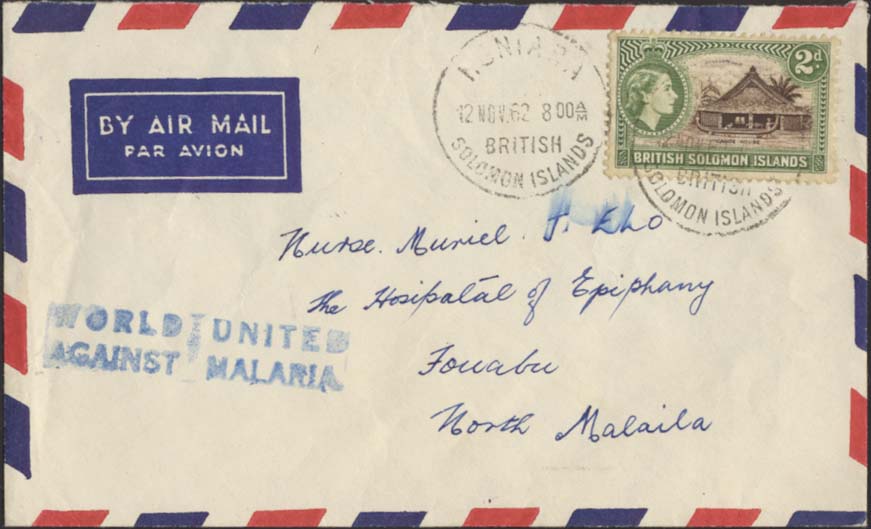 HONIARA
12 NOV. 62 8 00 AM
BRITISH
SOLOMON ISLANDS
2d
BRITISH SOLOMON ISLANDS
BRITISH
SOLOMON ISLANDS
BY AIR MAIL
PAR AVION
Nurse. Muriel. J. Elo
The Hosipatal of Epiphany
Fouabu
North Malaila
WORLD UNITED
AGAINST MALARIA